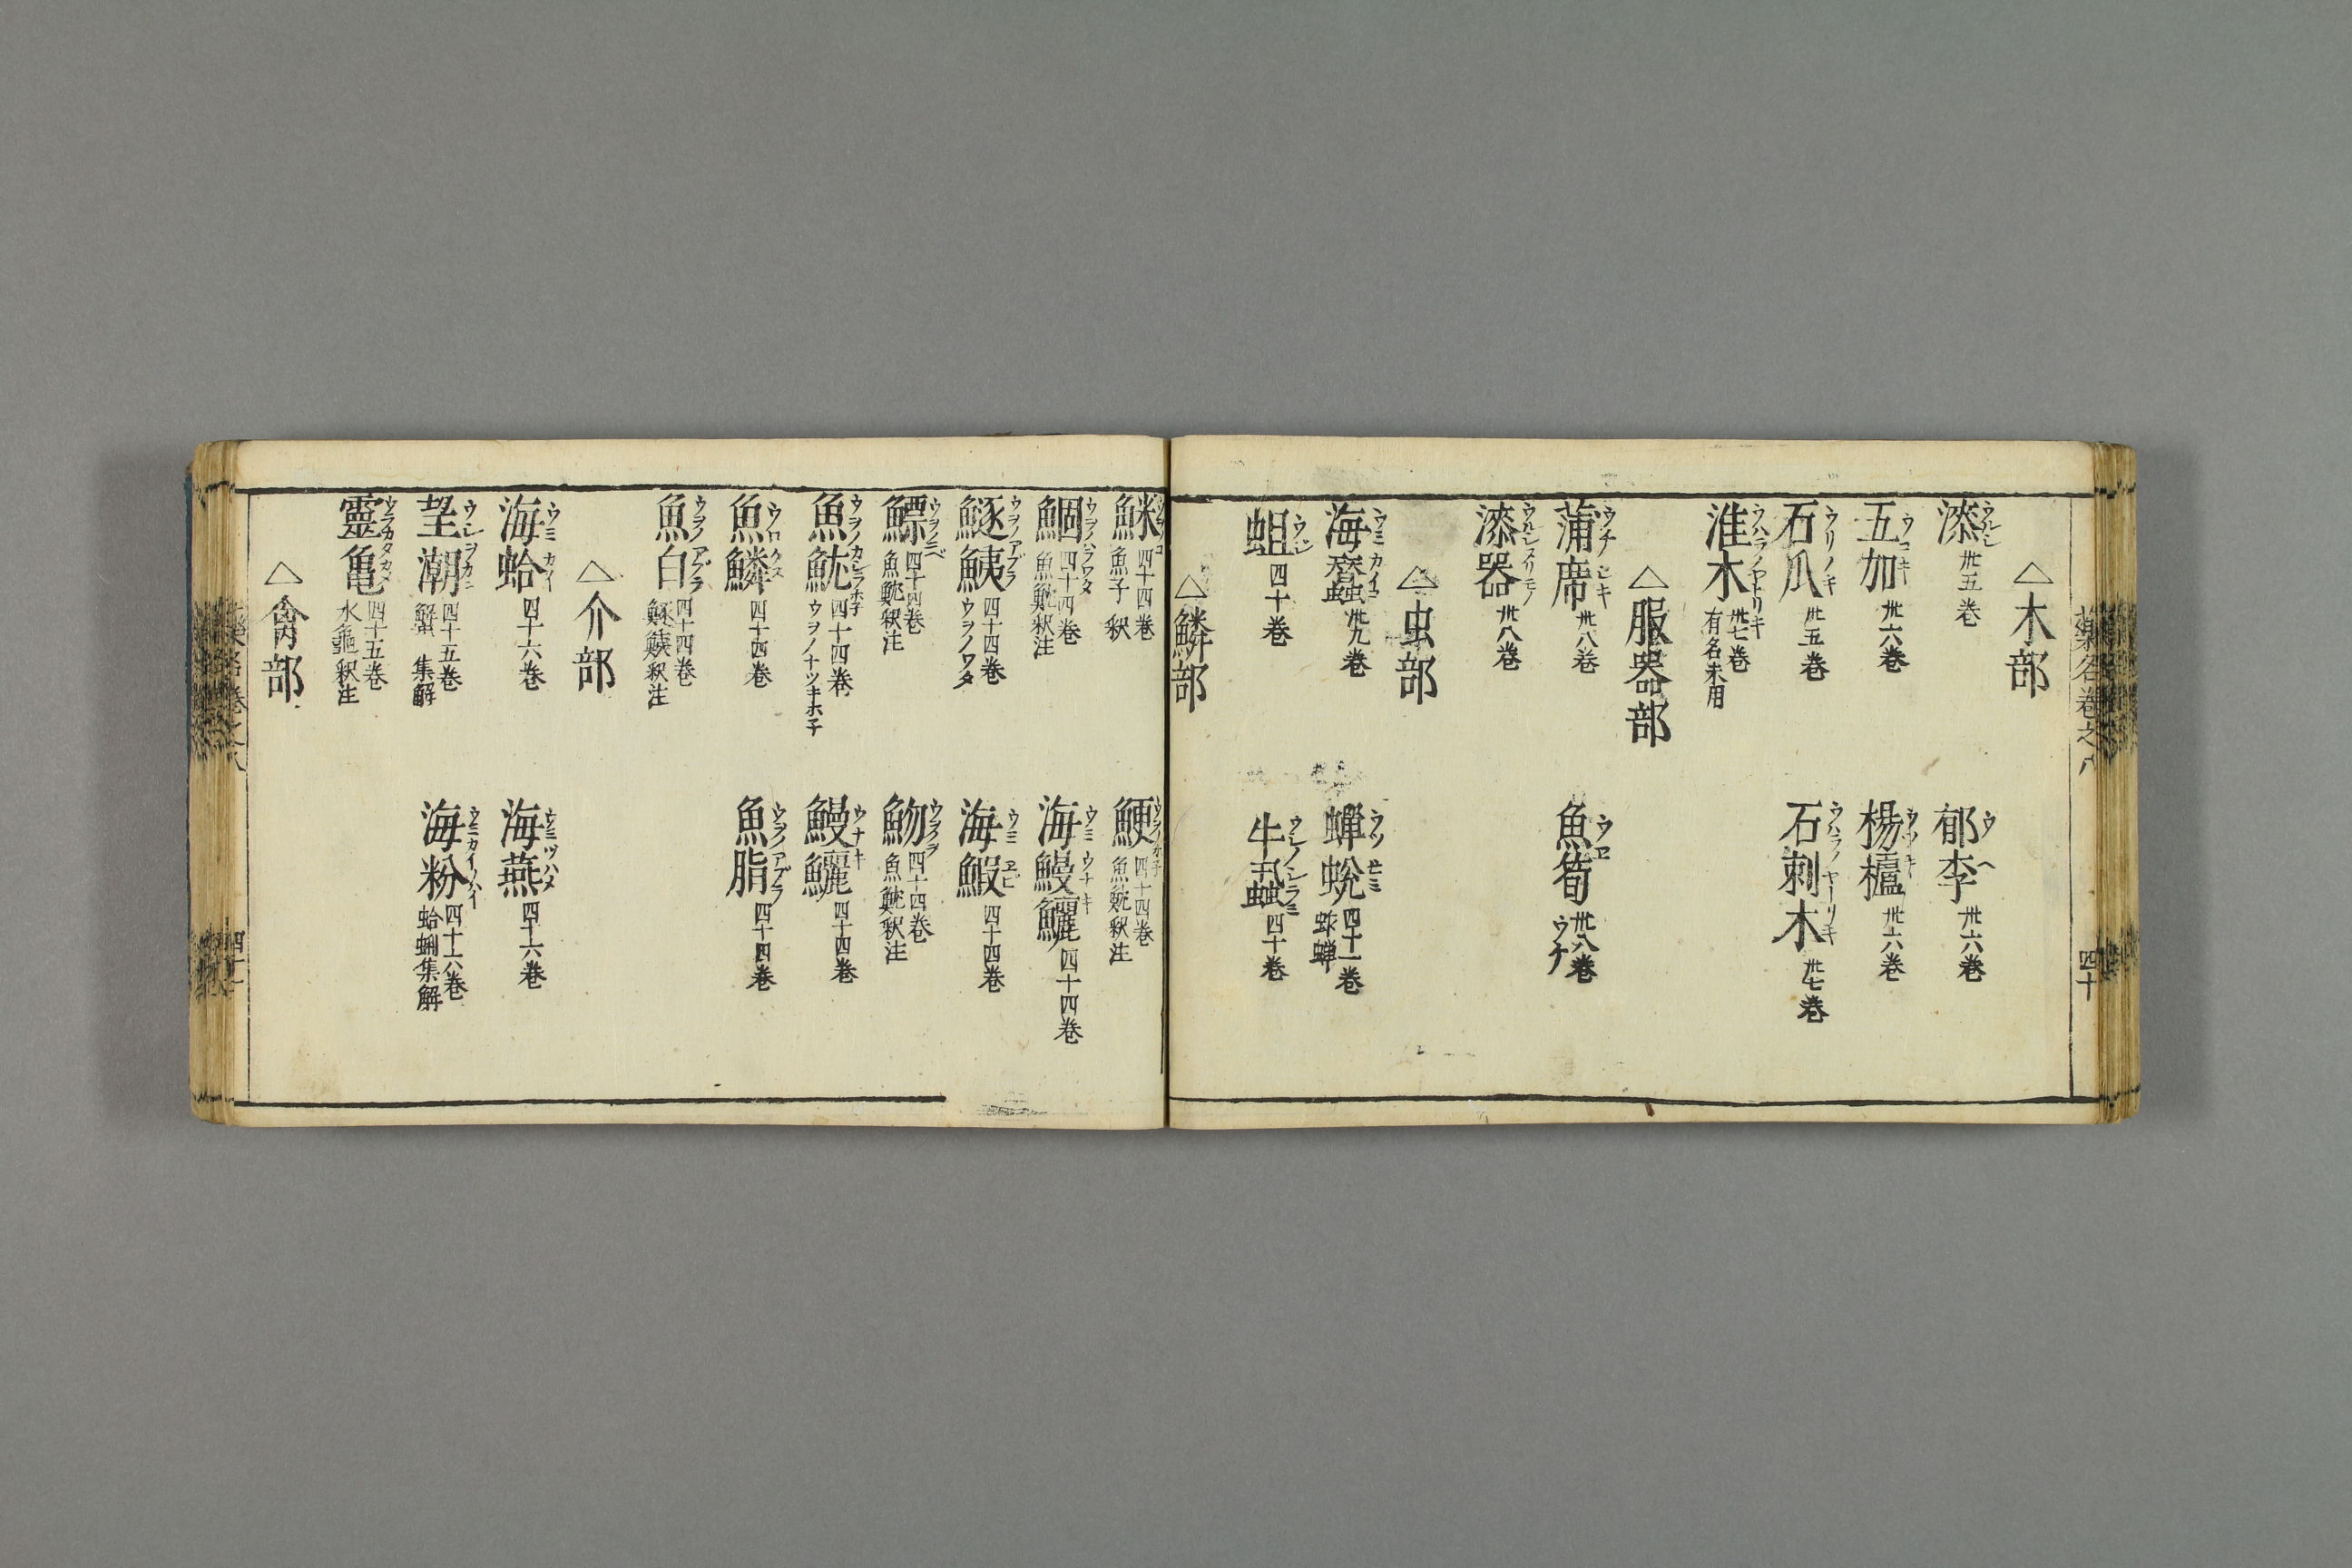 藥名巻之八 四十
△木部
漆 ウルシ 丗五巻
郁李 ウヘ 丗六巻
五加 ウコキ 丗六巻
楊櫨 ウツキ 丗六巻
石瓜 ウリノキ 丗五巻
石刺木 丗七巻
淮木 ウハラノヤトリキ 丗七巻 有名未用
△服器部
蒲席 ウチシキ 丗八巻
魚笱 ウロ 丗八巻 ウチ
漆器 ウルシヌリモノ 丗八巻
△虫部
海蠶 ウミカイコ 丗九巻
蟬蛻 ウツセミ 四十一巻 蚱蟬
蛆 ウジ 四十巻
牛虱 ウシノシラミ 四十巻
△鱗部
鮇 四十四巻 魚子 釈
鯁 四十四巻 魚鱿釈注
鯝 ウヲノハラワタ 四十四巻 魚鱿釈注
海鰻鱺 ウミウナキ 四十四巻
鱁鮧 ウヲノアブラ 四十四巻 ウヲノワタ
海鰕 ウミヱビ 四十四巻
鰾 ウヲノニベ 四十四巻 魚鱿釈注
魩 四十四巻 魚鱿釈注
魚鱿 ウヲノカシラホネ 四十四巻 ウヲノナツキホ子
鰻鱺 ウナキ 四十四巻
魚鱗 ウロクズ 四十四巻
魚脂 ウヲノアブラ 四十四巻
魚白 ウヲノアブラ 四十四巻 鱁鮧釈注
△介部
海蛤 ウミカイ 四十六巻
海燕 ウミツハメ 四十六巻
望潮 ウシヲカニ 四十五巻 蟹 集解
海粉 ウミカイノハイ 四十六巻 蛤蜊集解
靈亀 ウラカタカメ 四十五巻 水龜釈注
△禽部
藥名巻之八 四十一